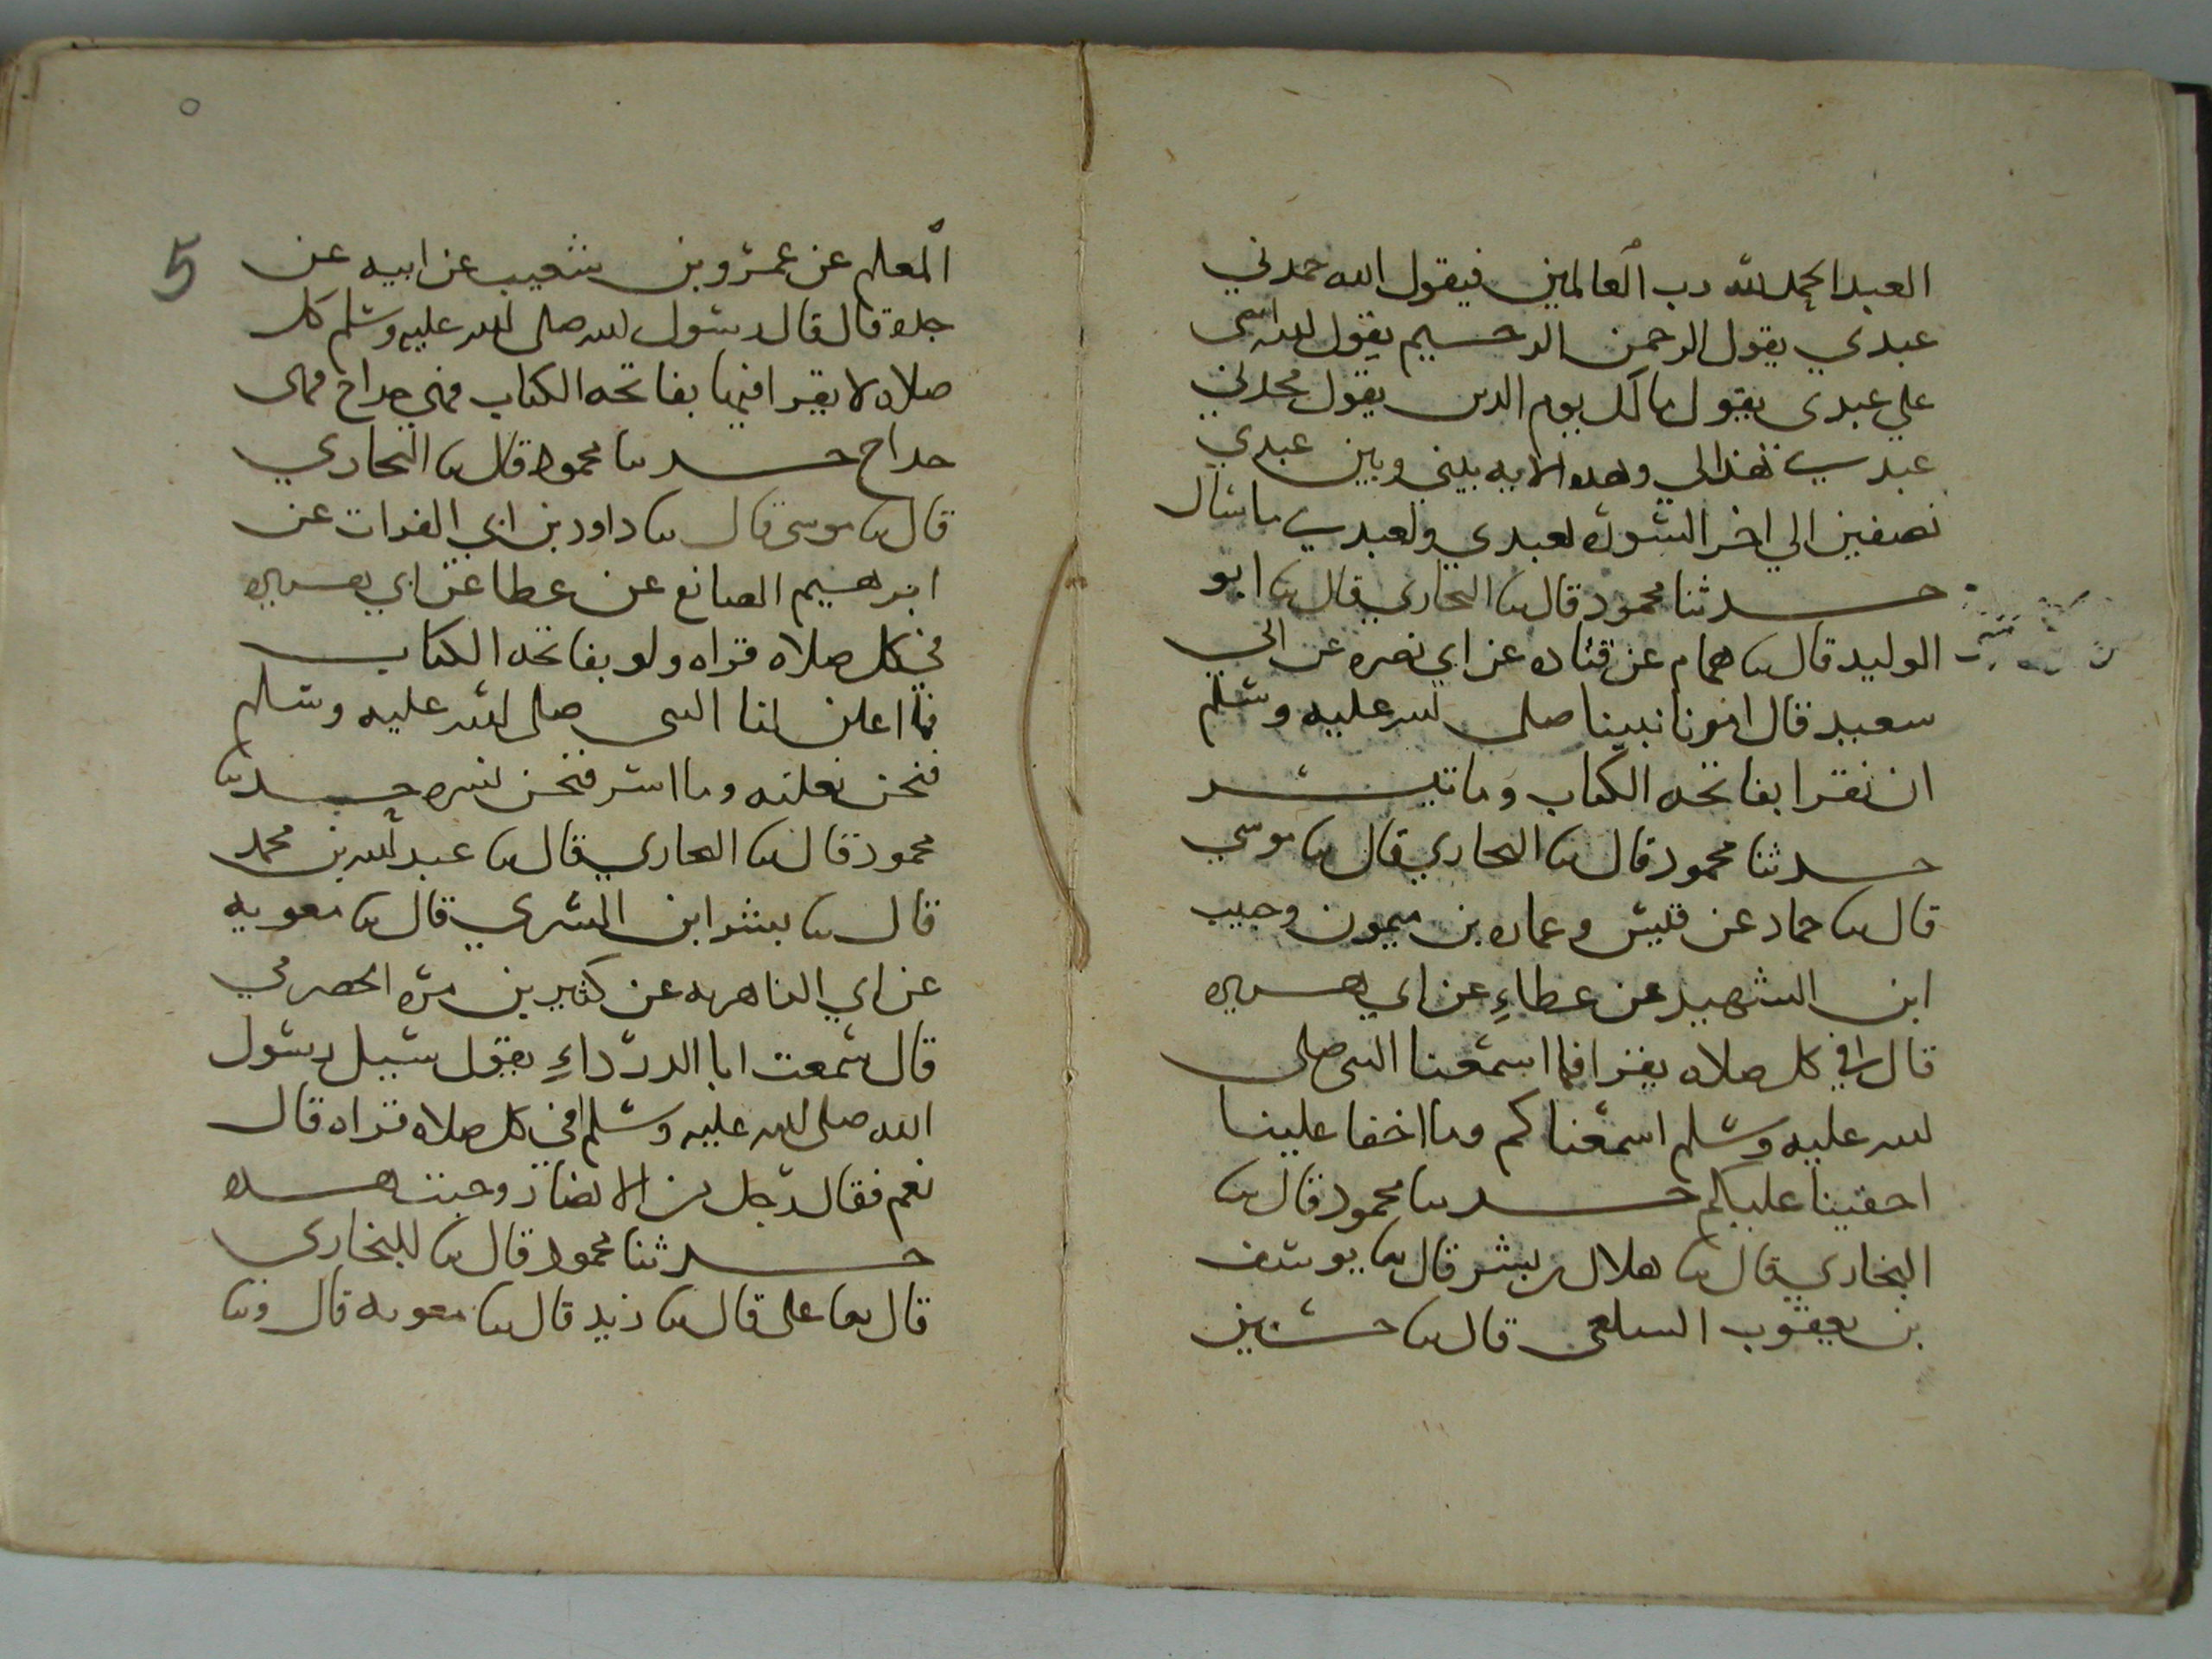 العبد الحمد لله رب العالمين فيقول الله حمدني
عبدي يقول الرحمن الرحيم يقول الله اثنى
علي عبدي يقول مالك يوم الدين يقول مجدني
عبدي هذا لي وهذه الايه بيني وبين عبدي
نصفين الي اخر السوره لعبدي ولعبدي ما سال
حدثنا محمود قال ثنا البخاري قال ثنا ابو
الوليد قال ثنا همام عن قتاده عن ابي نضره عن ابي
سعيد قال امرنا نبينا صلى الله عليه وسلم
ان نقرا بفاتحه الكتاب وما تيسر
حدثنا محمود قال ثنا البخاري قال ثنا موسي
قال ثنا حماد عن قيس وعماره بن ميمون وحبيب
ابن الشهيد عن عطاءِ عن ابي هريره
قال في كل صلاه يقرا فما اسمعنا النبي صلى
الله عليه وسلم اسمعناكم وما اخفا علينا
اخفينا عليكم حدثنا محمود قال ثنا
البخاري قال ثنا هلال بن بشر قال ثنا يوسف
بن يعقوب السلعي قال ثنا حسين
٥
5
المعلم عن عمرو بن شعيب عن ابيه عن
جده قال قال رسول الله صلى الله عليه وسلم كل
صلاه لا يقرا فيها بفاتحه الكتاب فهي خداج فهي
خداج حدثنا محمود قال ثنا البخاري
قال ثنا موسى قال ثنا داود بن ابي الفرات عن
ابرهيم الصانع عن عطا عن ابي هريره
في كل صلاه قراه ولو بفاتحه الكتاب
فما اعلن لنا النبي صلى الله عليه وسلم
فنحن نعلنه وما اسر فنحن نسره حدثنا
محمود قال ثنا البخاري قال ثنا عبد الله بن محمد
قال ثنا بشر ابن السري قال ثنا معويه
عن ابي الزاهريه عن كثير بن مره الحضرمي
قال سمعت ابا الدرداءِ يقول سيل رسول
الله صلى الله عليه وسلم افي كل صلاه قراه قال
نعم فقال رجل من الانصار وجبت هذه
حدثنا محمود قال ثنا البخاري
قال ثنا على قال ثنا زيد قال ثنا معويه قال وثنا